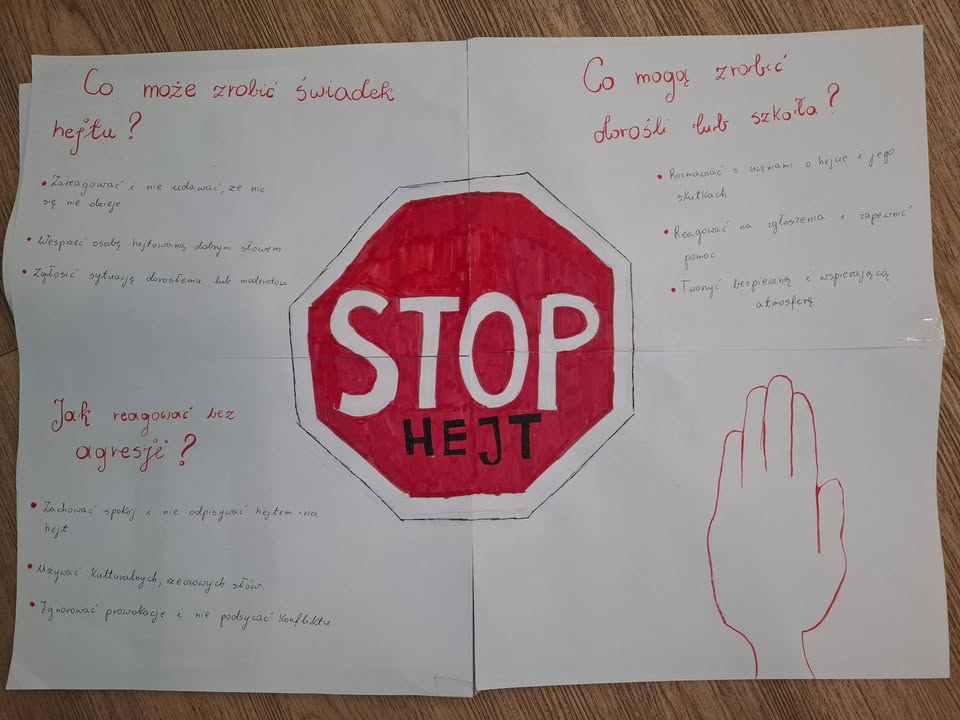 Co może zrobić świadek
hejtu?
• Zareagować i nie udawać, że nic
się nie dzieje
• Wesprzeć osobę hejtowaną dobrym słowem
• Zgłosić sytuację dorosłemu lub moderatorowi
Co mogą zrobić
dorośli lub szkoła?
• Rozmawiać z uczniami o hejcie i jego
skutkach
• Reagować na zgłoszenia i zapewnić
pomoc
• Tworzyć bezpieczną i wspierającą
atmosferę
STOP
HEJT
Jak reagować bez
agresji?
• Zachować spokój i nie odpisywać hejtem na
hejt
• Używać kulturalnych, rzeczowych słów.
• Ignorować prowokacje i nie podsycać konfliktu.